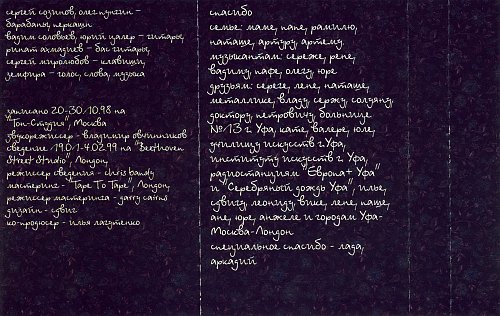 сергей созинов, олег пунгин -
барабаны, перкашн
вадим соловьев, юрий цалер - гитары,
ринат ахмадиев - бас гитары,
сергей миролюбов - клавиши,
земфира - голос, слова, музыка
записано 20-30.10.98 на
"Тон-Студия", Москва
звукорежиссер - владимир овчинников
сведение 19.01-4.02.99 на "Beethoven
Street Studio", Лондон,
режиссер сведения - chris bandy
мастеринг - "Tape To Tape", Лондон,
режиссер мастеринга - garry cairns
дизайн - сдвиг
ко-продюсер - илья лагутенко
спасибо
семье: маме, папе, рамилю,
наташе, артуру, артему.
музыкантам: сереже, рене,
вадиму, пафе, олегу, юре
друзьям: сереге, лене, наташе,
металлике, владу, сержу, солзяну,
доктору, петровичу, больнице
№13 г. Уфа, кате, валере, юле,
училищу искусств г.Уфа,
институту искусств г. Уфа,
радиостанциям "Европа+ Уфа"
и "Серебряный дождь Уфа", илье,
сдвигу, леониду, вике, лене, каше,
ане, юре, анжеле и городам Уфа-
Москва-Лондон
специальное спасибо - лада,
аркадий